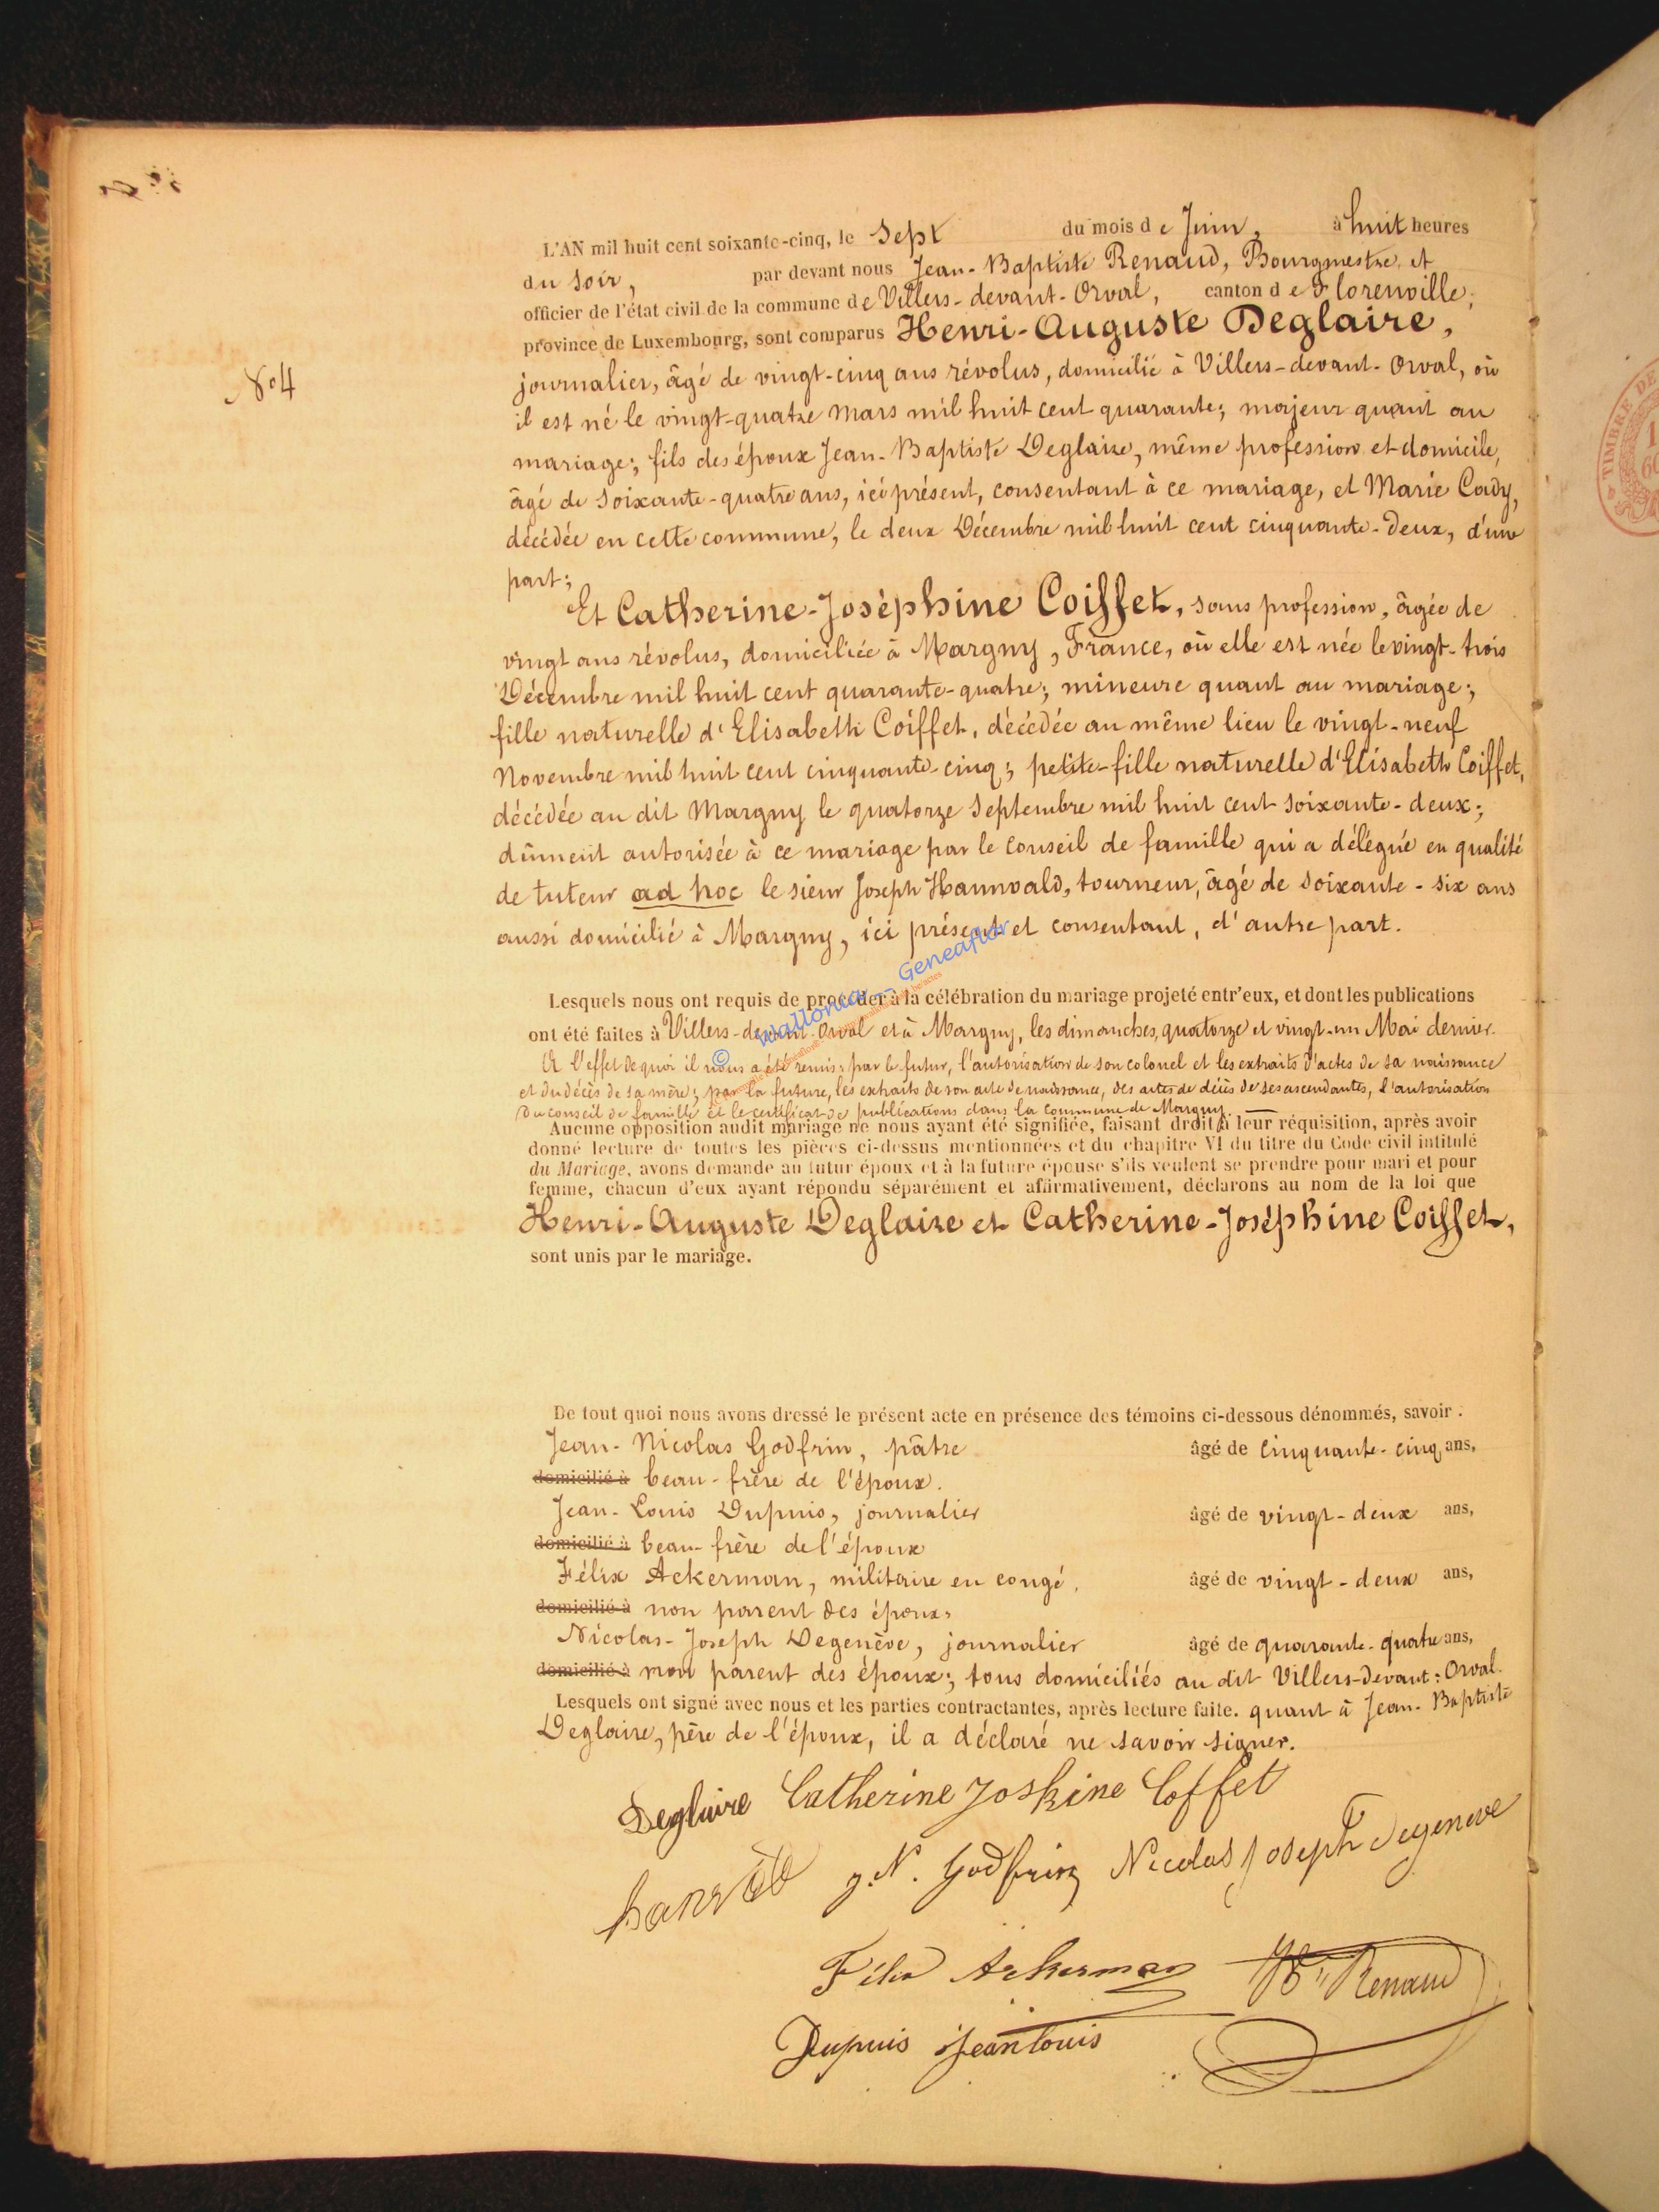 L'AN mil huit cent soixante-cinq, le Sept du mois de Juin, à huit heures
du soir, par devant nous Jean-Baptiste Renaud, Bourgmestre et
officier de l'état civil de la commune de Villers-devant-Orval, canton de Florenville,
province de Luxembourg, sont comparus Henri-Auguste Deglaire,
N° 4
journalier, âgé de vingt-cinq ans révolus, domicilié à Villers-devant-Orval, où
il est né le vingt-quatre Mars mil huit cent quarante; majeur quant au
mariage; fils des époux Jean-Baptiste Deglaire, même profession et domicile,
âgé de soixante-quatre ans, ici présent, consentant à ce mariage, et Marie Cady,
décédée en cette commune, le deux Décembre mil huit cent cinquante-deux, d'une
part;
Et Catherine-Joséphine Coiffet, sans profession, âgée de
vingt ans révolus, domiciliée à Margny, France, où elle est née le vingt-trois
Décembre mil huit cent quarante-quatre; mineure quant au mariage;
fille naturelle d'Elisabeth Coiffet, décédée au même lieu le vingt-neuf
Novembre mil huit cent cinquante-cinq; petite-fille naturelle d'Elisabeth Coiffet,
décédée au dit Margny le quatorze Septembre mil huit cent soixante-deux;
dûment autorisée à ce mariage par le conseil de famille qui a délégué en qualité
de tuteur ad hoc le sieur Joseph Hannvald, tourneur, âgé de soixante-six ans
aussi domicilié à Margny, ici présent et consentant, d'autre part.
© Wallonica - Geneaflor
Lesquels nous ont requis de procéder à la célébration du mariage projeté entr'eux, et dont les publications
ont été faites à Villers-devant-Orval et à Margny, les dimanches, quatorze et vingt-un Mai dernier.
A l'effet de quoi il nous a été remis; par le futur, l'autorisation de son colonel et les extraits d'actes de sa naissance
et du décès de sa mère; par la future, les extraits de son acte de naissance, des actes de décès de ses ascendantes, l'autorisation
du conseil de famille et le certificat de publications dans la commune de Margny.
Aucune opposition audit mariage ne nous ayant été signifiée, faisant droit à leur réquisition, après avoir
donné lecture de toutes les pièces ci-dessus mentionnées et du chapitre VI du titre du Code civil intitulé
du Mariage, avons demandé au futur époux et à la future épouse s'ils veulent se prendre pour mari et pour
femme, chacun d'eux ayant répondu séparément et affirmativement, déclarons au nom de la loi que
Henri-Auguste Deglaire et Catherine-Joséphine Coiffet,
sont unis par le mariage.
De tout quoi nous avons dressé le présent acte en présence des témoins ci-dessous dénommés, savoir :
Jean-Nicolas Godfrin, pâtre âgé de cinquante-cinq ans,
domicilié à beau-frère de l'époux.
Jean-Louis Dupuis, journalier âgé de vingt-deux ans,
domicilié à beau-frère de l'époux
Félix Ackerman, militaire en congé, âgé de vingt-deux ans,
domicilié à non parent des époux,
Nicolas-Joseph Degenève, journalier âgé de quarante-quatre ans,
domicilié à non parent des époux; tous domiciliés au dit Villers-devant-Orval.
Lesquels ont signé avec nous et les parties contractantes, après lecture faite. quant à Jean-Baptiste
Deglaire, père de l'époux, il a déclaré ne savoir signer.
Deglaire Catherine Joshine Coffet
J. N. Godfrin Nicolas Joseph Degeneve
Félix Ackerman Renaud
Dupuis Jean Louis
TIMBRE DE